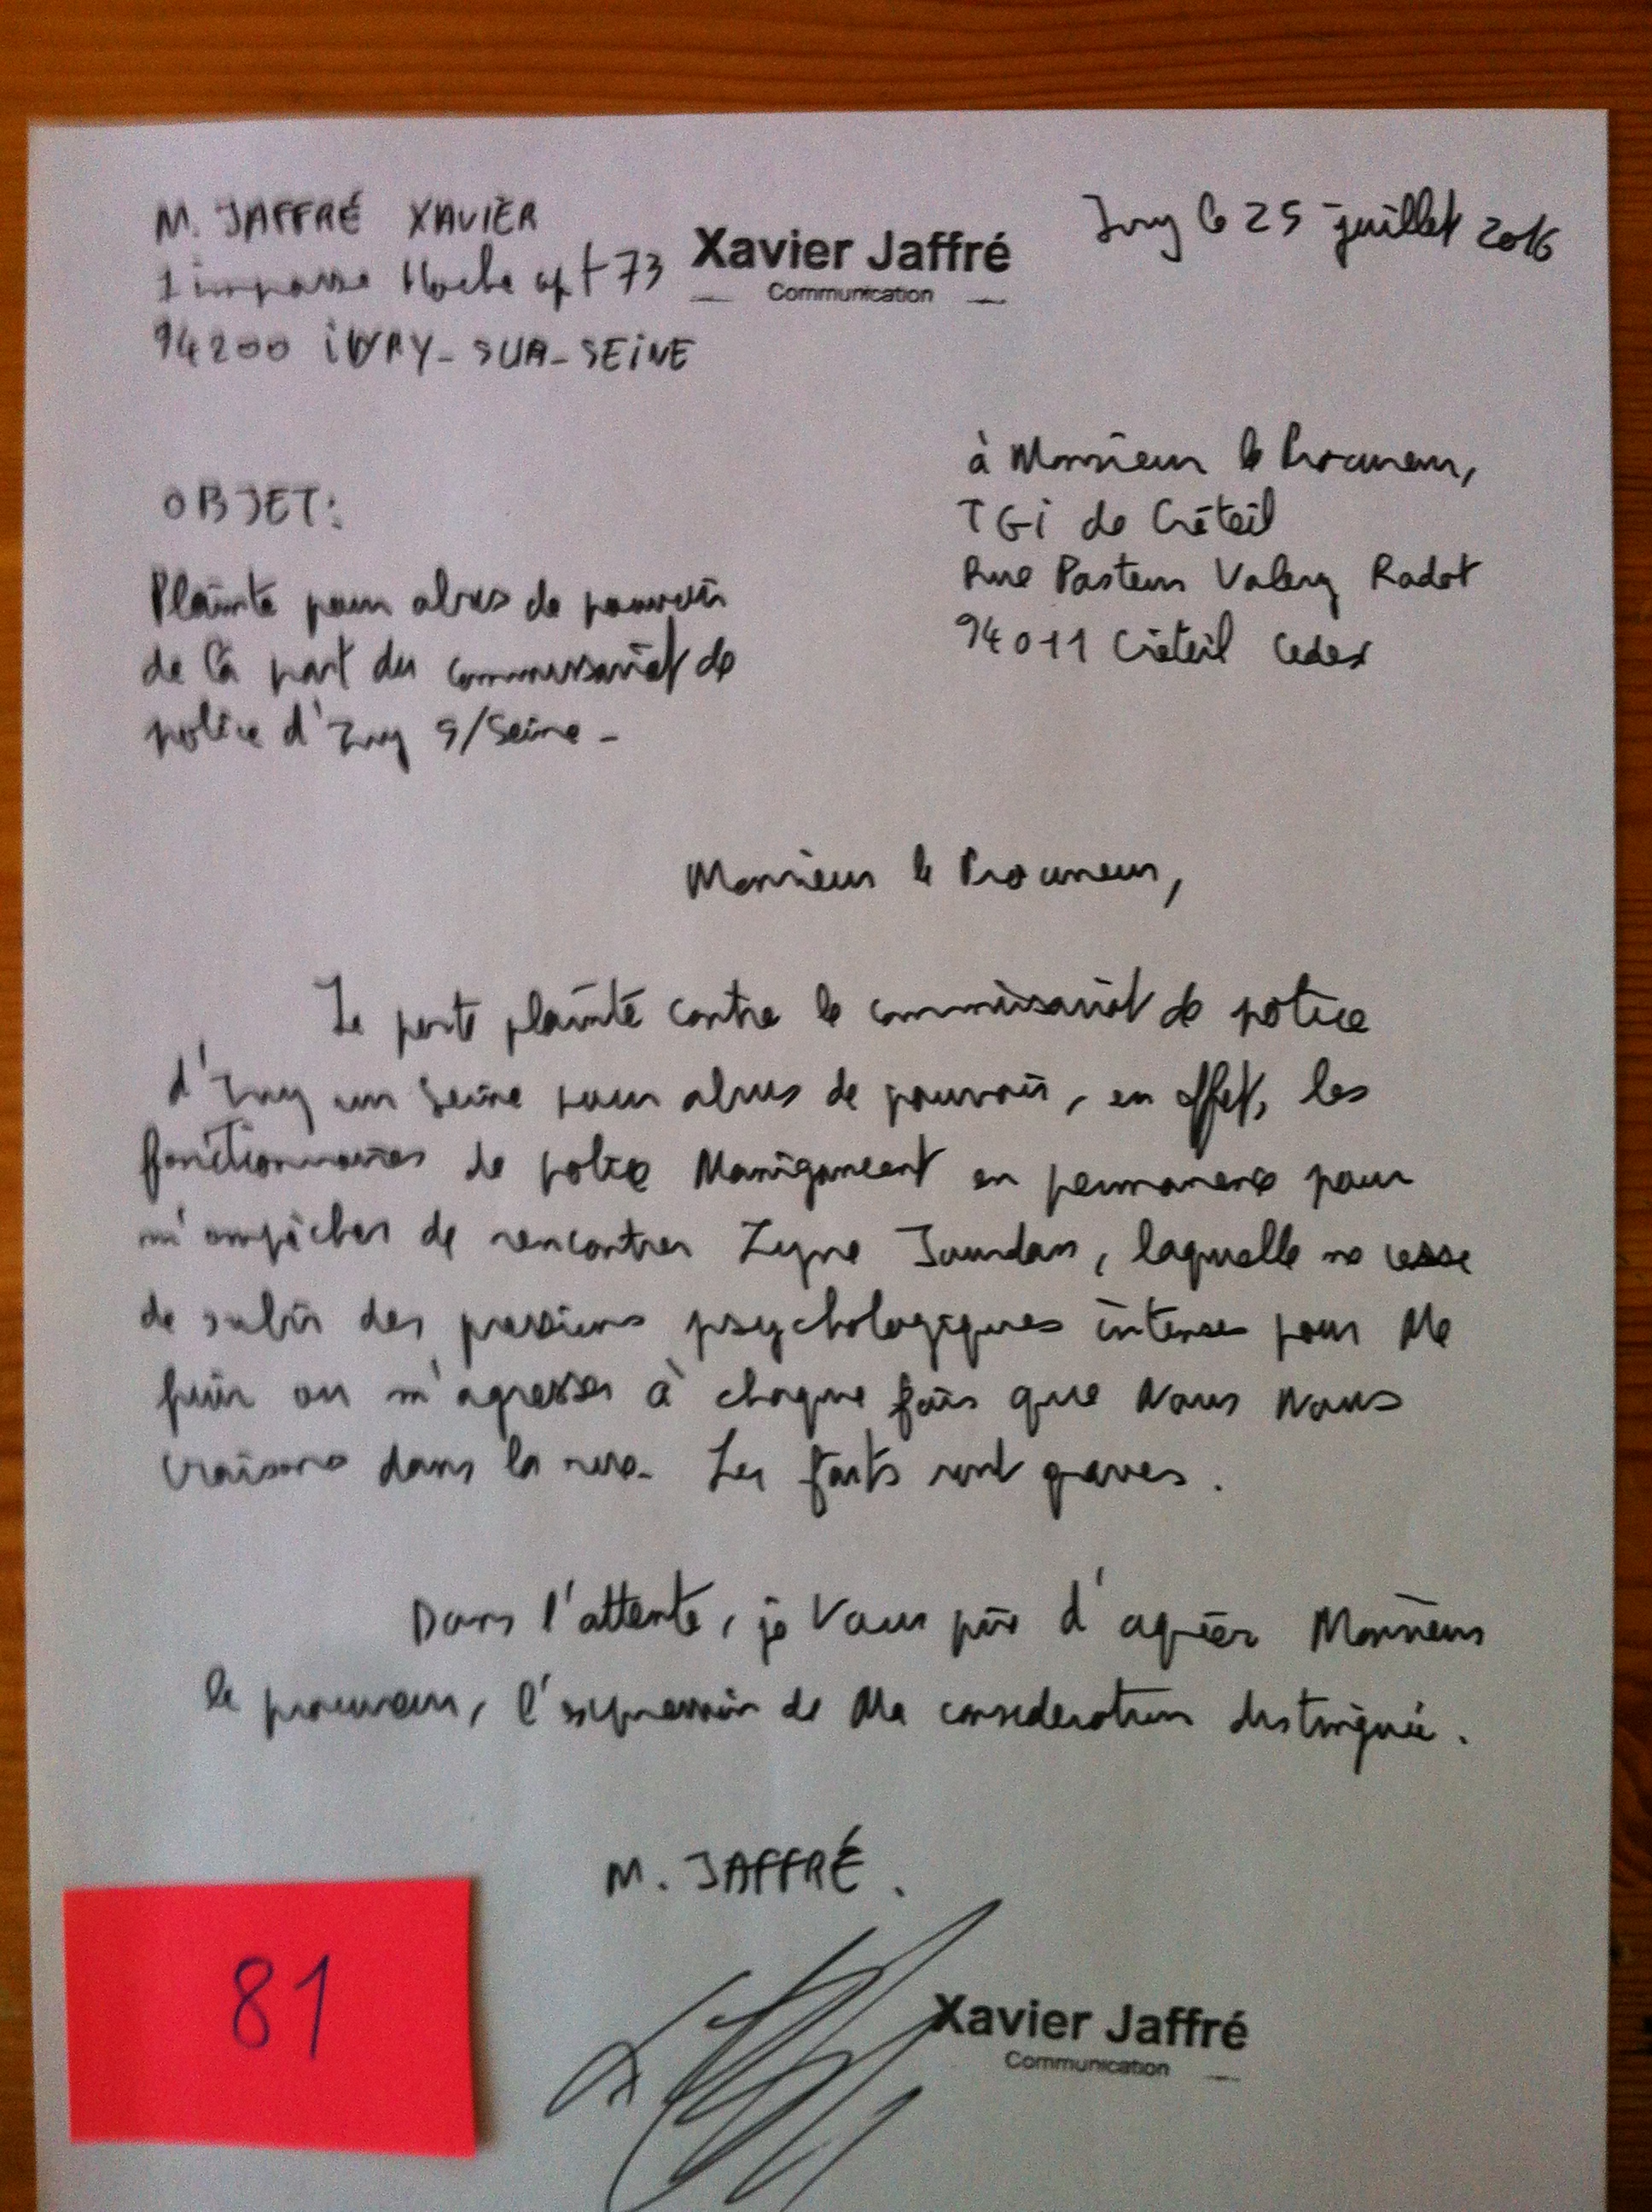 M. JAFFRÉ XAVIER
1 impasse Hoche apt 73
94200 IVRY-SUR-SEINE
Xavier Jaffré
Communication
Ivry le 25 juillet 2016
à Monsieur le Procureur,
TGI de Créteil
Rue Pasteur Valery Radot
94011 Créteil Cedex
OBJET:
Plainte pour abus de pouvoir
de la part du commissariat de
police d'Ivry S/Seine -
Monsieur le Procureur,
Je porte plainte contre le commissariat de police
d'Ivry sur Seine pour abus de pouvoir, en effet, les
fonctionnaires de police Manigancent en permanence pour
m'empêcher de rencontrer Zyne Jourdan, laquelle ne cesse
de subir des pressions psychologiques intenses pour Me
fuir ou m'agresser à chaque fois que Nous Nous
croisons dans la rue. Les faits sont graves.
Dans l'attente, je Vous prie d'agréer Monsieur
le procureur, l'expression de Ma consideration distinguée.
M. JAFFRÉ.
81
Xavier Jaffré
Communication